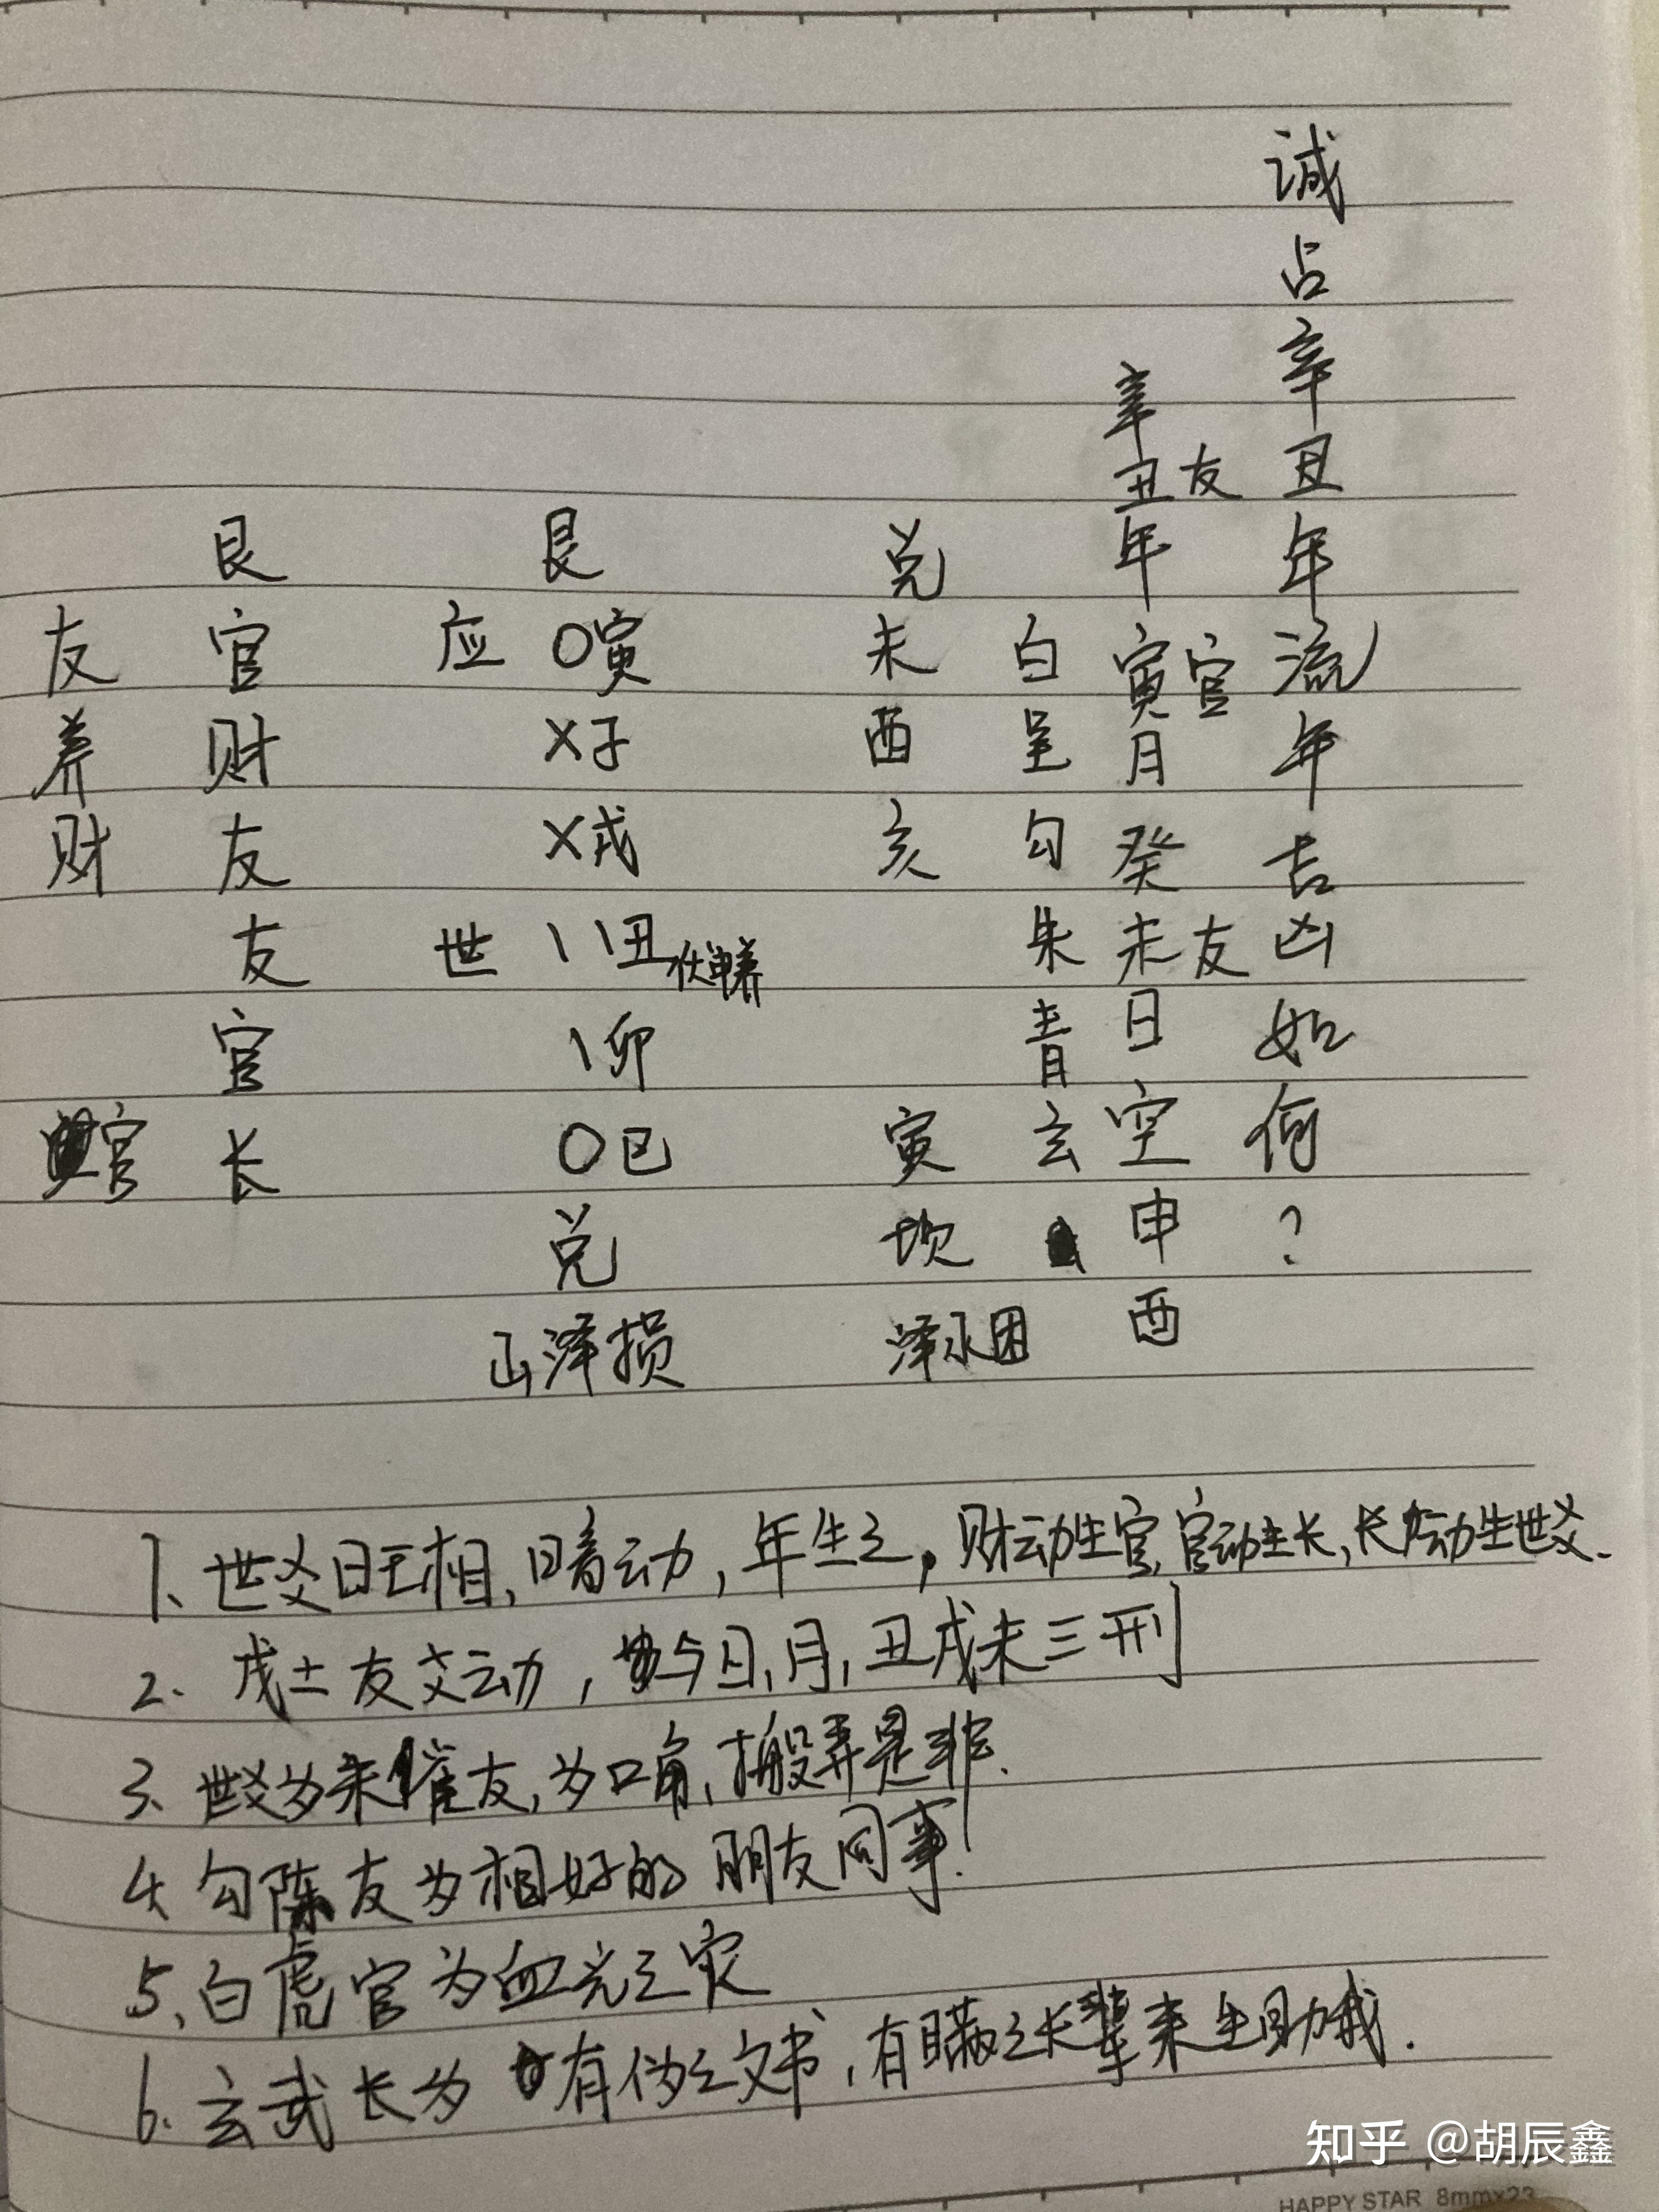 诚占辛丑年流年吉凶如何？
辛丑友年寅官月癸未友日空申酉
艮 艮 兑
友 官 应 〇寅 未 白
养 财 X子 酉 呈
财 友 X戌 亥 勾
友 世 \\丑 伏申养 朱
官 \卯 青
官 长 〇巳 寅 玄
兑 坎
山泽损 泽水困
1、世爻旺相，暗动，年生之，财动生官，官动生长，长动生世爻.
2. 戌土友爻动，与日，月，丑戌未三刑
3、世爻为朱雀友，为口角，搬弄是非.
4 勾陈友为相好的朋友同事.
5、白虎官为血光之灾
6. 玄武长为有伪之文书，有瞒之长辈来生助我.
知乎 @胡辰鑫
HAPPY STAR 8mmx23